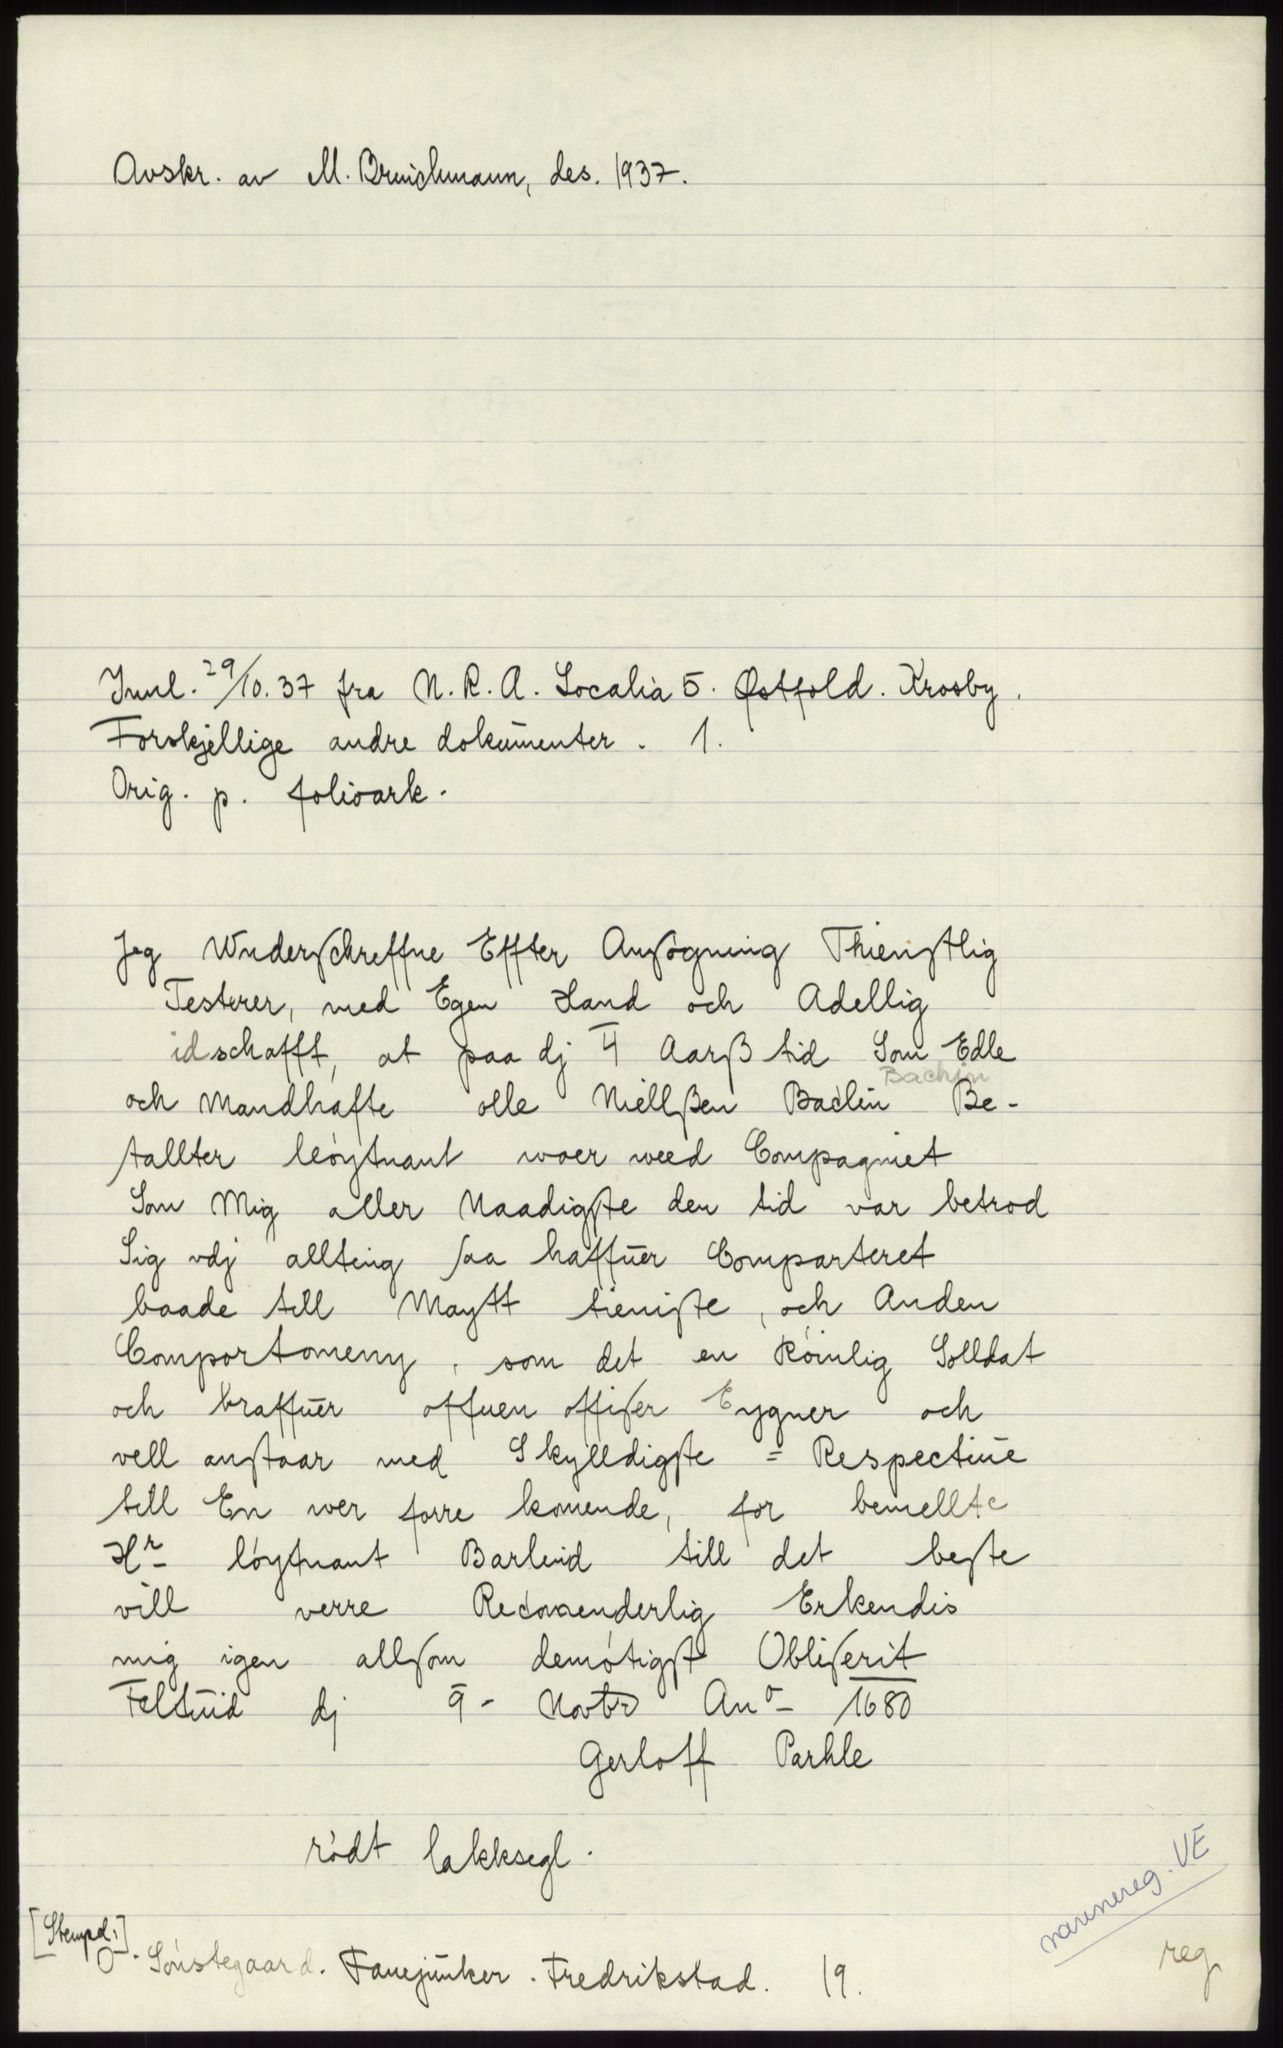 Avskr. av M. Bruichmann, des. 1937.
Innl. 29/10.37 fra N.R.A. Localia 5. Østfold. Krosby.
Forskjellige andre dokumenter. 1.
Orig. p. folioark.
Jeg Wnderschreffne Effter Ansøgning Thienstlig
Testerer, med Egen Hand och Adellig
idschafft, at paa dj 4 Aarß tid Som Edle
Bachin
och Mandhafte olle Niellßen Baclin Be-
tallter leøytnant woer weed Compagniet
Som Mig aller Naadigste den tid var betrod
Sig vdj allting saa haffuer Comparteret
baade till Maytt tieniste, och Anden
Comportomeny, som det en Römlig Solldat
och braffuer offuen offiser Eygner och
vell anstaar med Skylldigste = Respectiue
till En wer forre komende, for bemellte
Hr löytnant Barlind till det beste
vill verre Recomenderlig Erkendis
mig igen allsom demötigst Obliserit
Feltuid dj 9- Novbr Ano- 1680
Gerloff Parkle
rödt lakksegl.
[Stempel:]
O. Sönstegaard. Fanejunker. Fredrikstad. 19.
navnereg. VE
reg